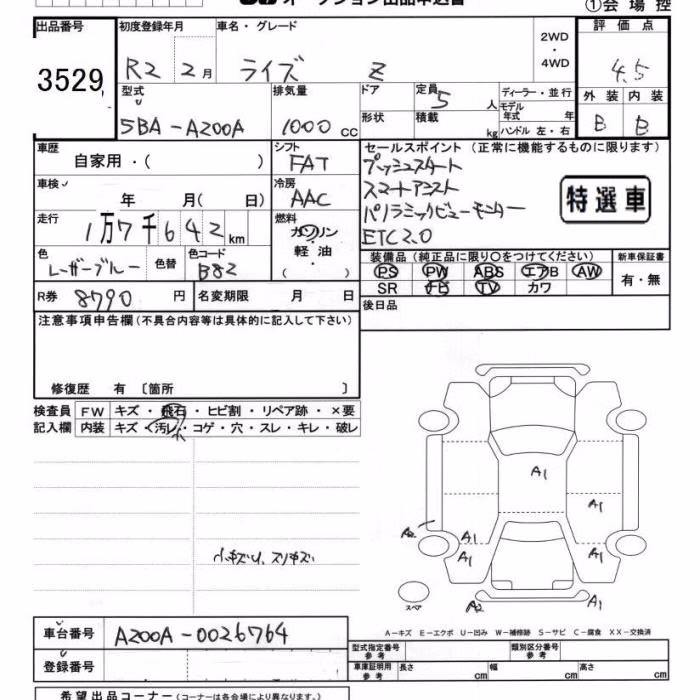 オークション出品申込書
①会場控
出品番号
3529
初度登録年月
R2 2月
車名・グレード
ライズ Z
2WD
・
4WD
評価点
4.5
型式
5BA-A200A
排気量
1000 cc
ドア
形状
定員 5 人
積載 kg
ディーラー・並行
モデル年式 年
ハンドル 左・右
外装 内装
B B
車歴
自家用・( )
シフト
FAT
車検
年 月( 日)
冷房
AAC
走行
1万7千642km
燃料
ガソリン
・
軽油
( )
色
レーザーブルー
色替
色コード
B82
R券 8790 円
名変期限 月 日
セールスポイント(正常に機能するものに限ります)
プッシュスタート
スマートアシスト
パノラミックビューモニター
ETC2.0
特選車
装備品(純正品に限り○をつけてください)
PS PW ABS エアB AW
SR ナビ TV カワ
新車保証書
有・無
後日品
注意事項申告欄(不具合内容等は具体的に記入して下さい)
修復歴 有〔箇所 〕
検査員 FW キズ・飛石・ヒビ割・リペア跡・×要
記入欄 内装 キズ・汚レ・コゲ・穴・スレ・キレ・破レ
小
小キズU、スリキズ
A1
A1
A2
A1
A1
A1
A1
A2
A1
スペア
A-キズ E-エクボ U-凹み W-補修跡 S-サビ C-腐食 XX-交換済
車台番号 A200A-0026764
登録番号
型式指定番号
参考
類別区分番号
参考
車庫証明用
参考
長さ cm
幅 cm
高さ cm
希望出品コーナー(コーナーは各会場により異なります。)